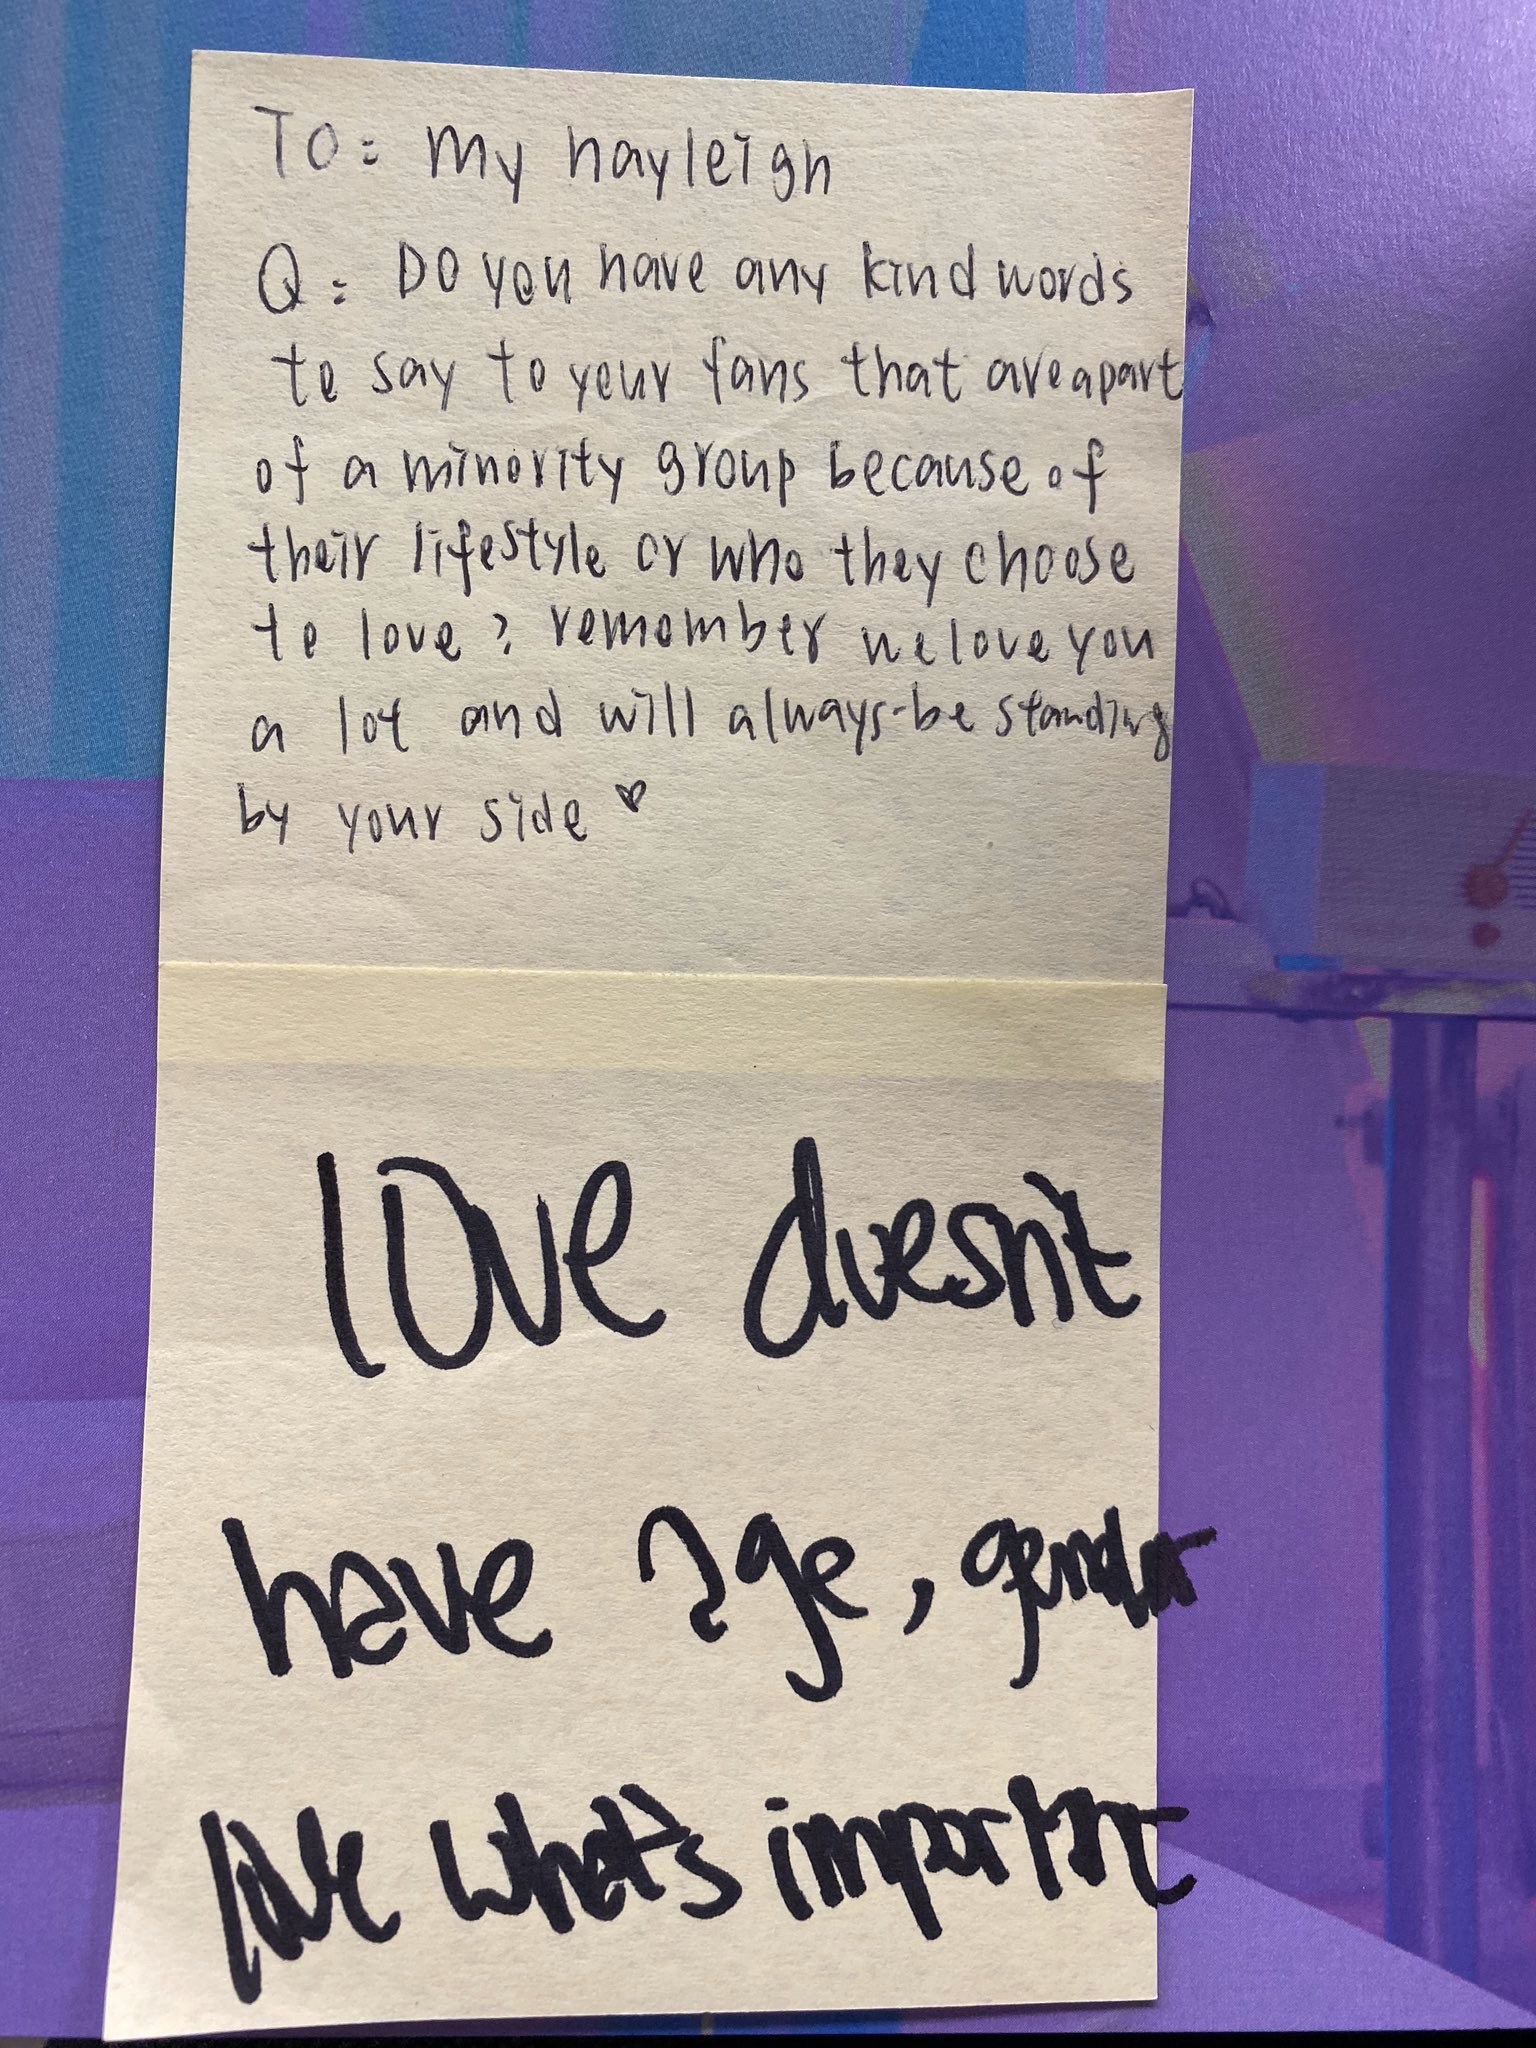 To: My hayleigh
Q: Do you have any kind words
to say to your fans that are apart
of a minority group because of
their lifestyle or who they choose
to love? remember we love you
a lot and will always be standing
by your side ♥
love doesn't
have age, gender
love what's important